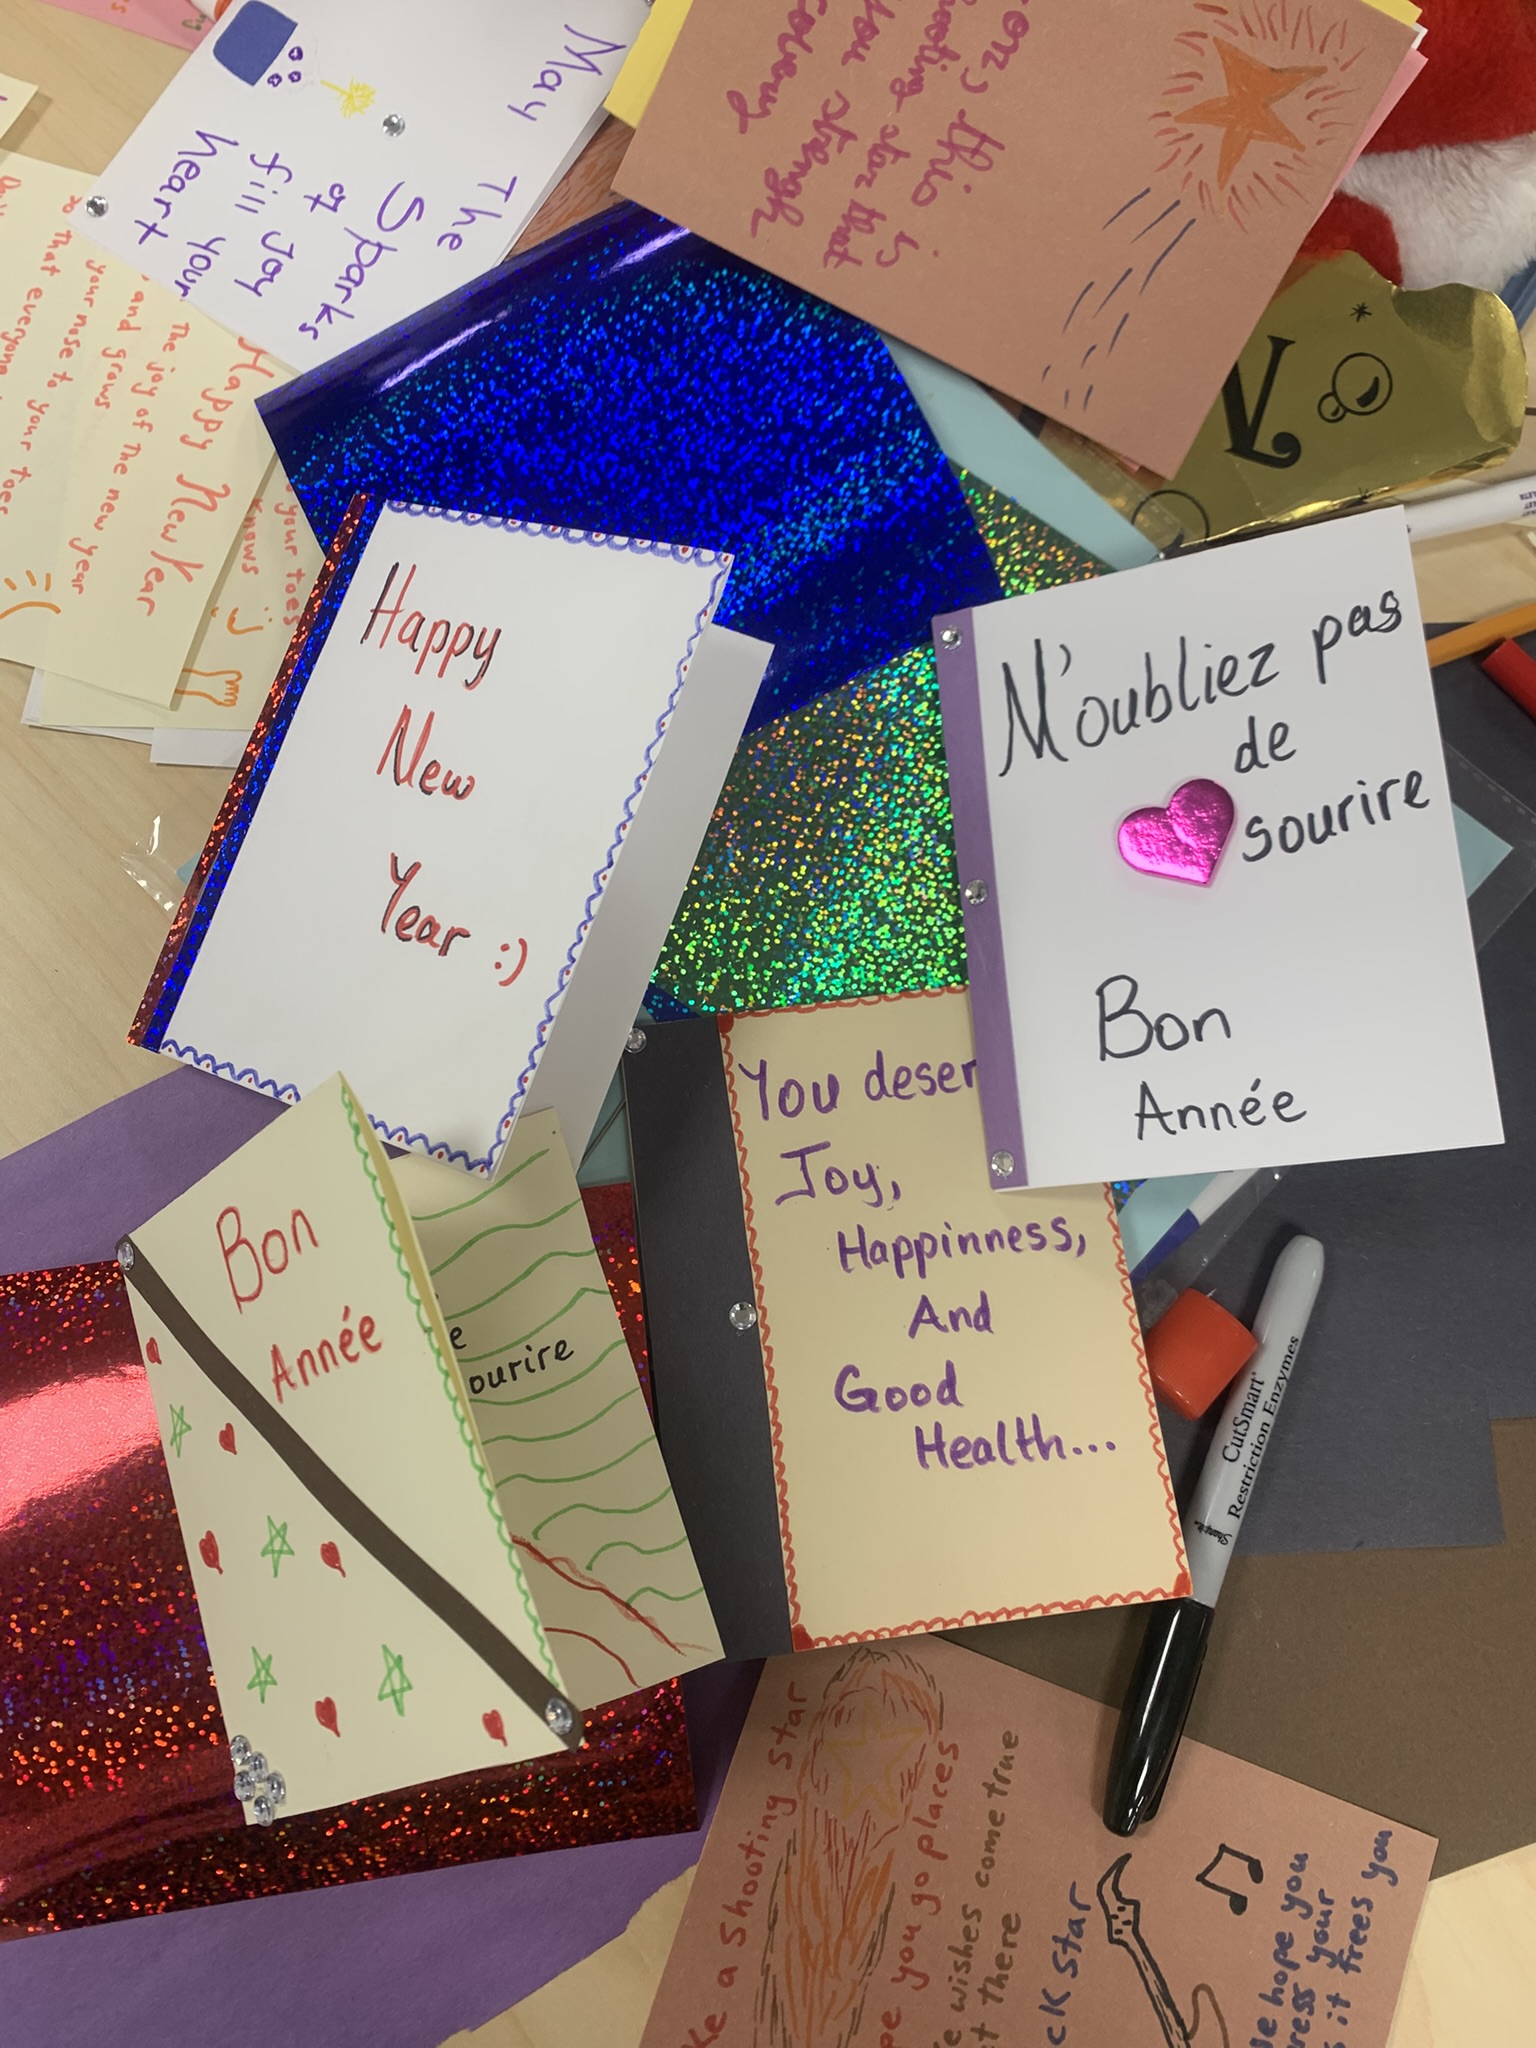 May The
Sparks
of
Joy
fill your
heart
this is
shooting star that
you strength
Happy New Year
The joy of the new year
and grows
your nose to your toes
to That everyone
your toes
knows :)
Happy
New
Year :)
M'oubliez pas
de
sourire
Bon
Année
You deser
Joy,
Happinness,
And
Good
Health...
Bon
Année
e
ourire
CutSmart®
Restriction Enzymes
Sharpie
a shooting star
you go places
wishes come true
there
ck star
hope you
your
it frees you